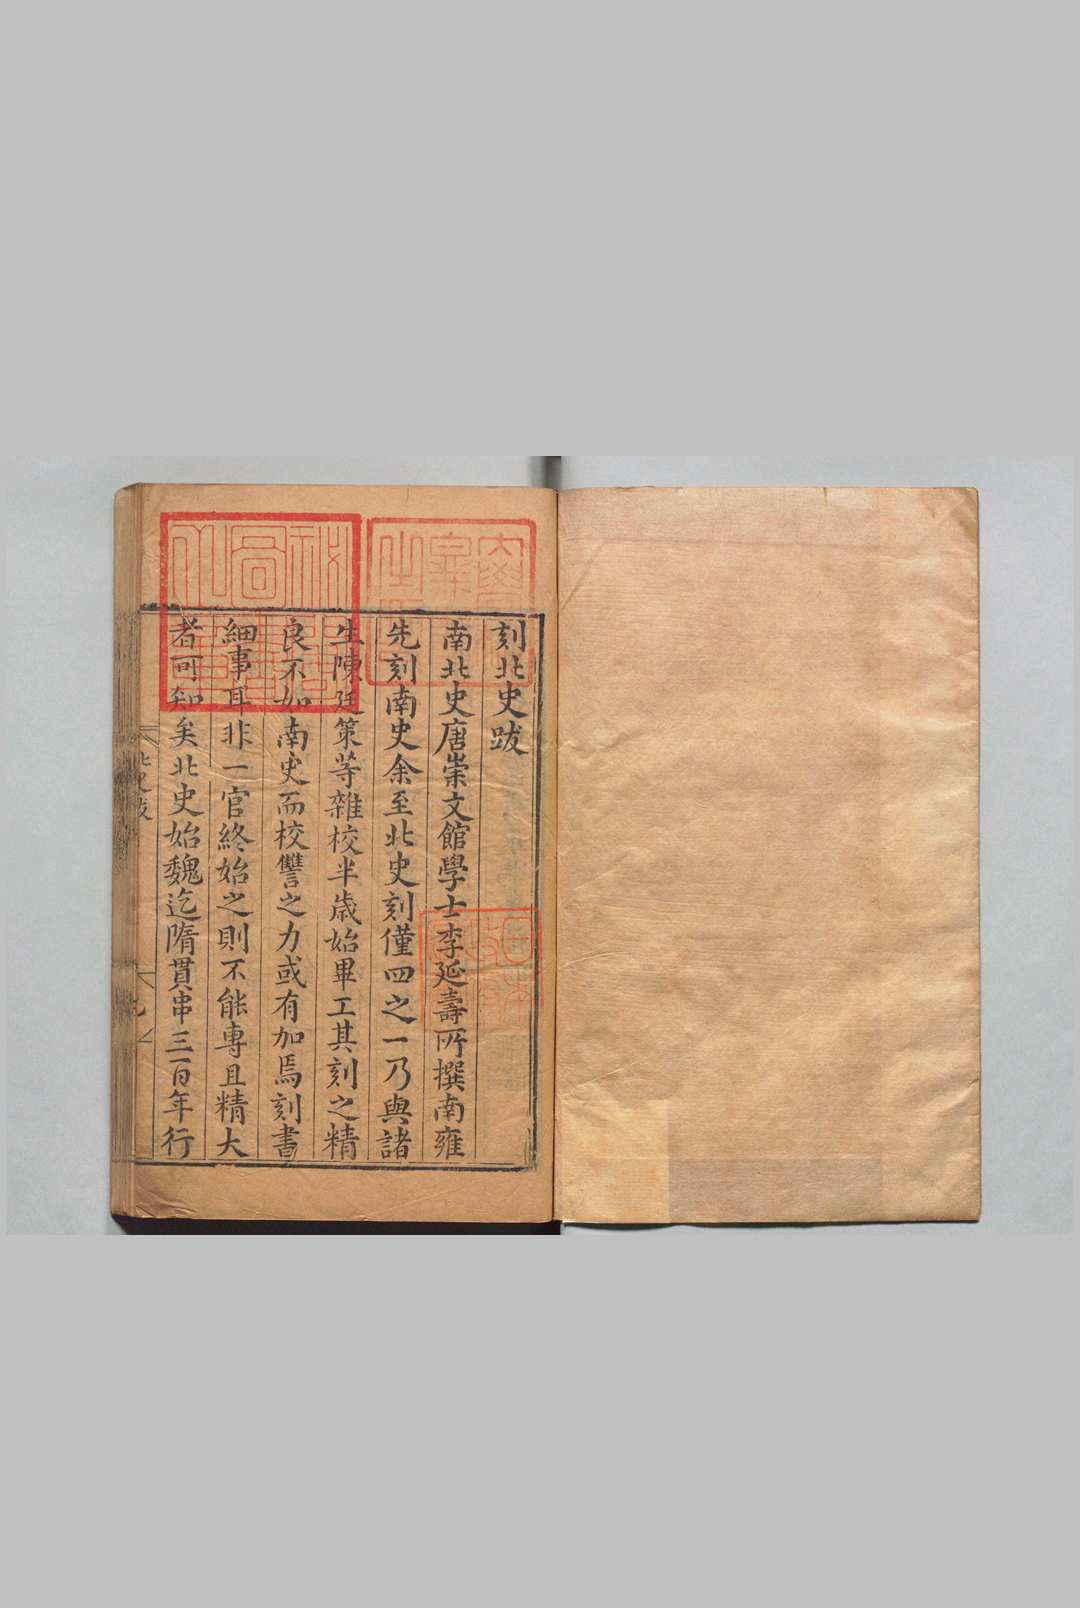 刻北史跋
南北史唐崇文館學士李延壽所撰南雍
先刻南史余至北史刻僅四之一乃與諸
生陳廷策等雜校半歲始畢工其刻之精
良不如南史而校讐之力或有加焉刻書
細事耳非一官終始之則不能專且精大
者可知矣北史始魏迄隋貫串三百年行
北史跋